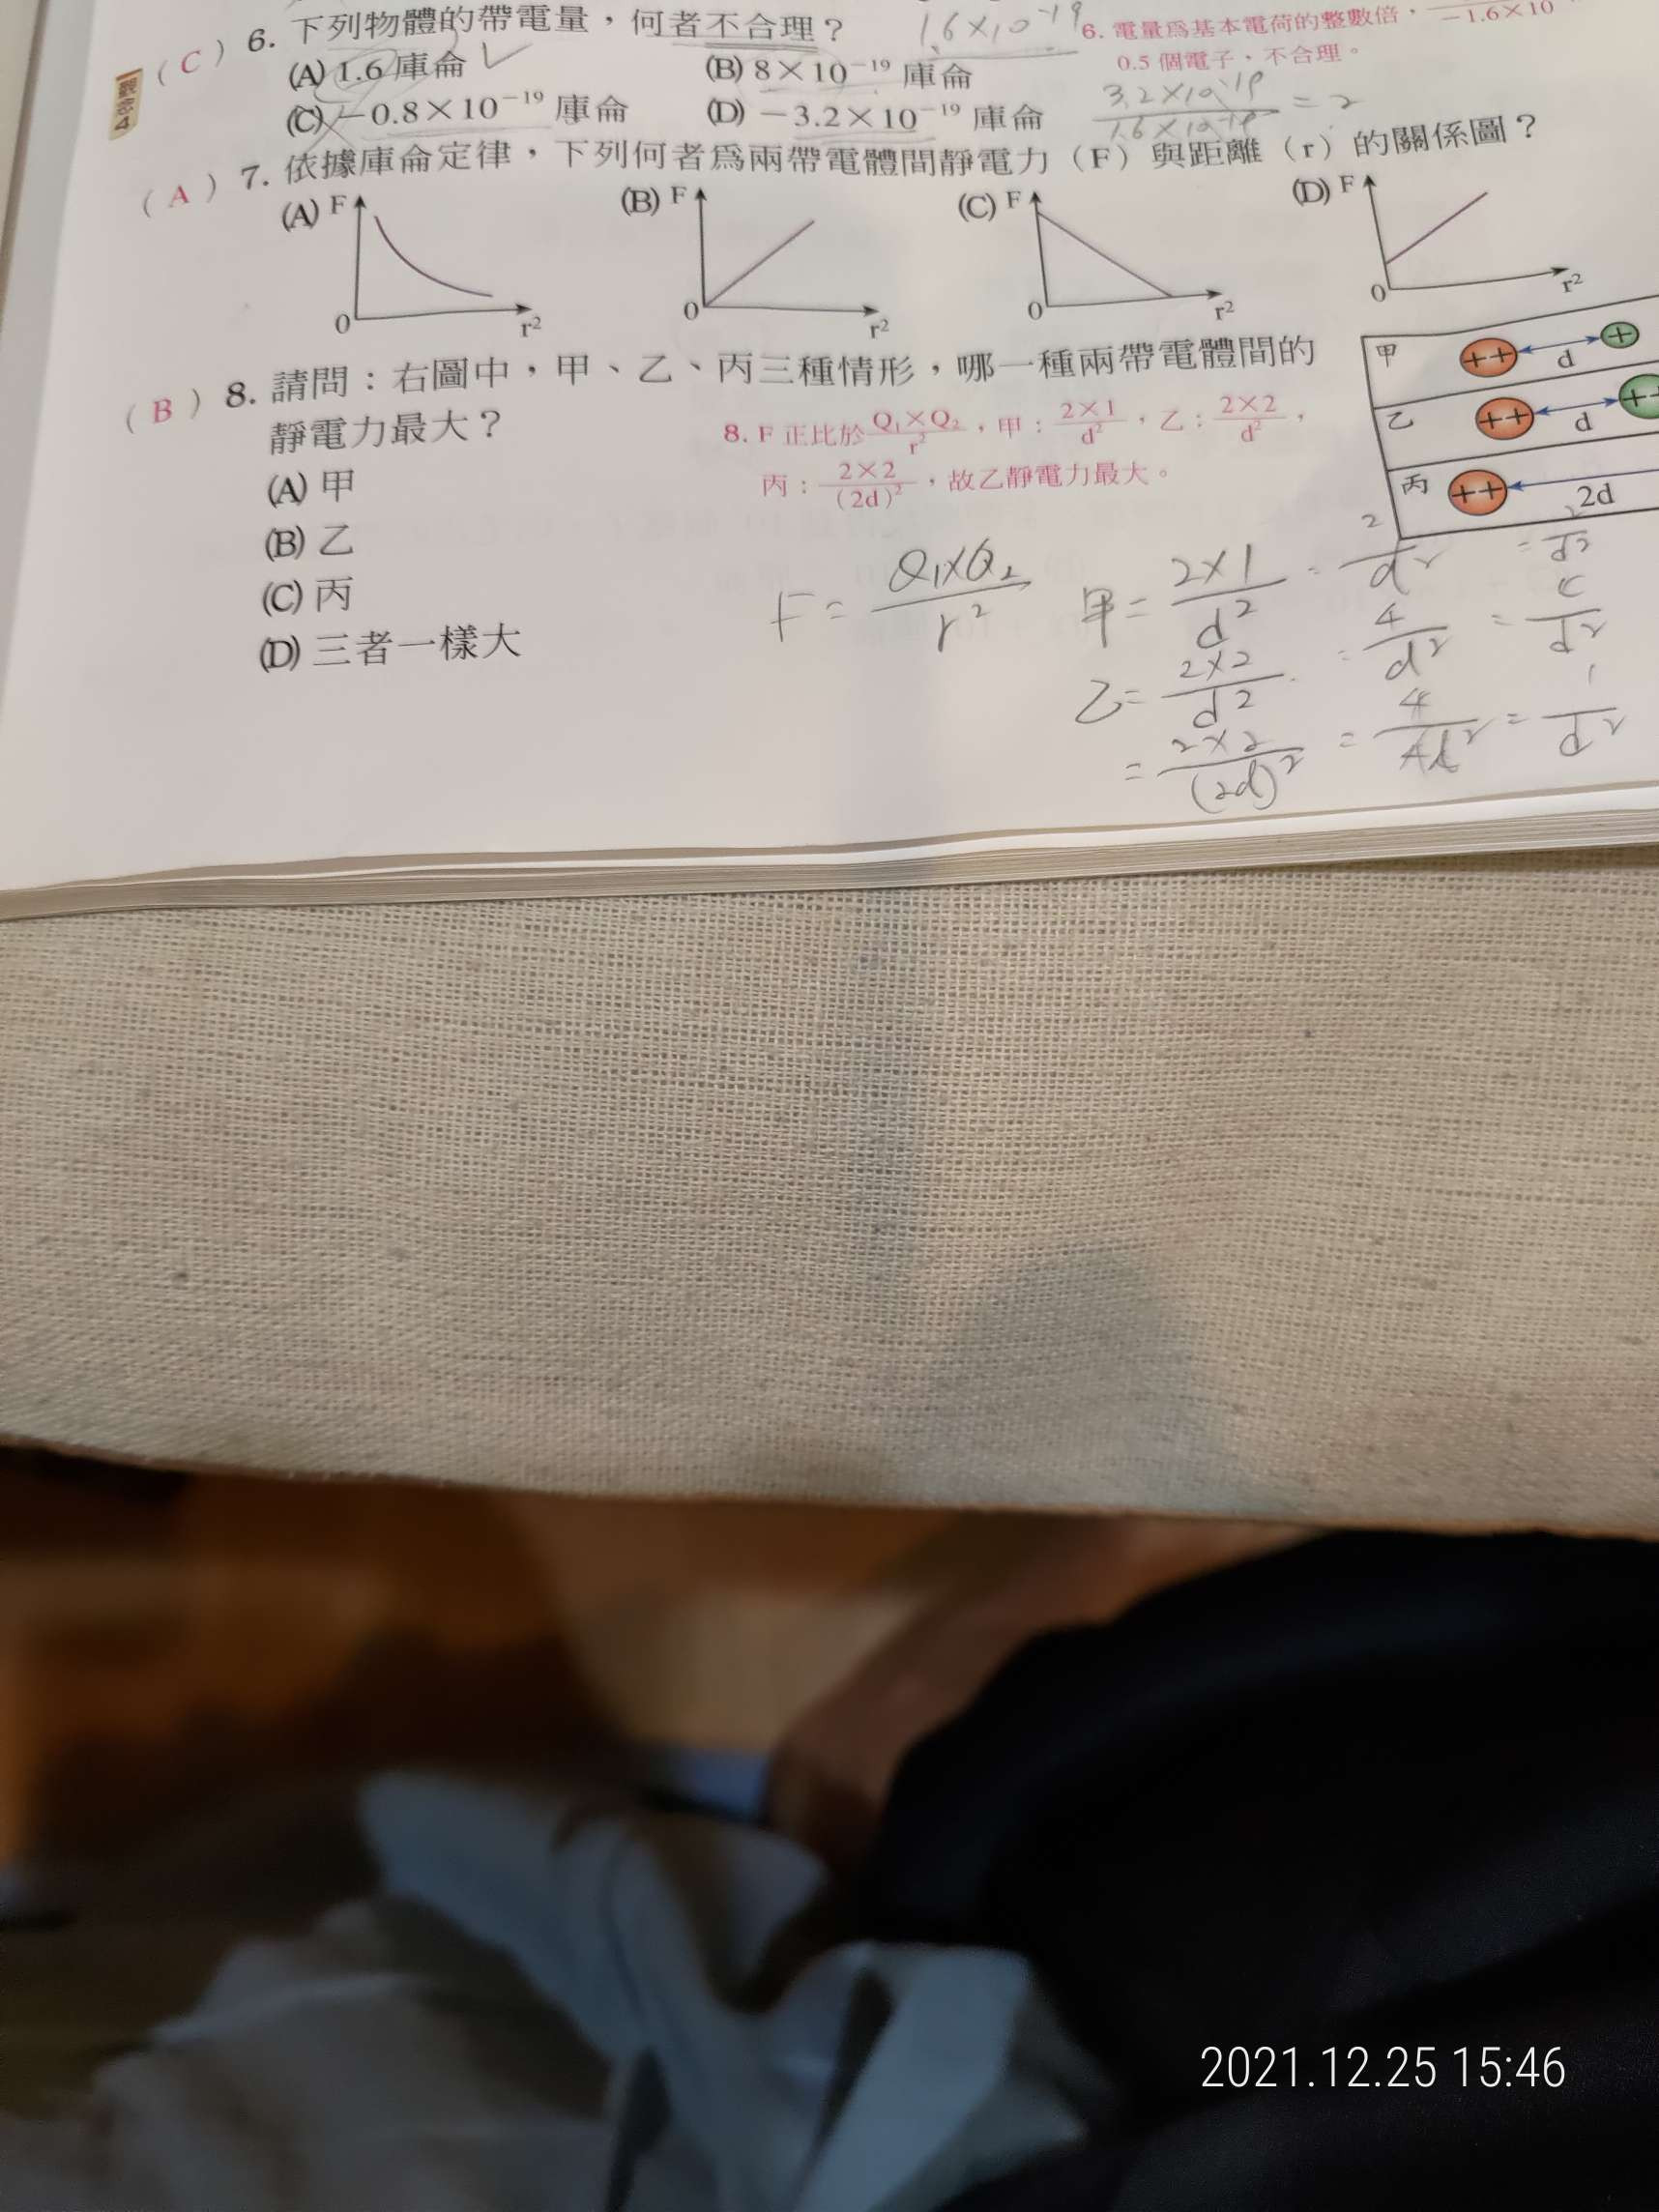 ( C ) 6. 下列物體的帶電量，何者不合理？ 1.6×10⁻¹⁹
6. 電量為基本電荷的整數倍，
−1.6×10
0.5 個電子，不合理。
(A) 1.6 庫侖 (B) 8×10⁻¹⁹ 庫侖
(C) −0.8×10⁻¹⁹ 庫侖 (D) −3.2×10⁻¹⁹ 庫侖
3.2×10⁻¹⁹ / 1.6×10⁻¹⁹ = 2
觀念4
( A ) 7. 依據庫侖定律，下列何者為兩帶電體間靜電力（F）與距離（r）的關係圖？
(A) F 0 r²
(B) F 0 r²
(C) F 0 r²
(D) F 0 r²
( B ) 8. 請問：右圖中，甲、乙、丙三種情形，哪一種兩帶電體間的
靜電力最大？
(A) 甲
(B) 乙
(C) 丙
(D) 三者一樣大
8. F 正比於 Q₁×Q₂ / r²，甲：2×1 / d²，乙：2×2 / d²，
丙：2×2 / (2d)²，故乙靜電力最大。
甲 ++ d +
乙 ++ d ++
丙 ++ 2d
F = Q₁×Q₂ / r²
甲 = 2×1 / d² = 2 / d² = / d²
乙 = 2×2 / d² = 4 / d² = / d²
= 2×2 / (2d)² = 4 / 4d² = 1 / d²
2021.12.25 15:46